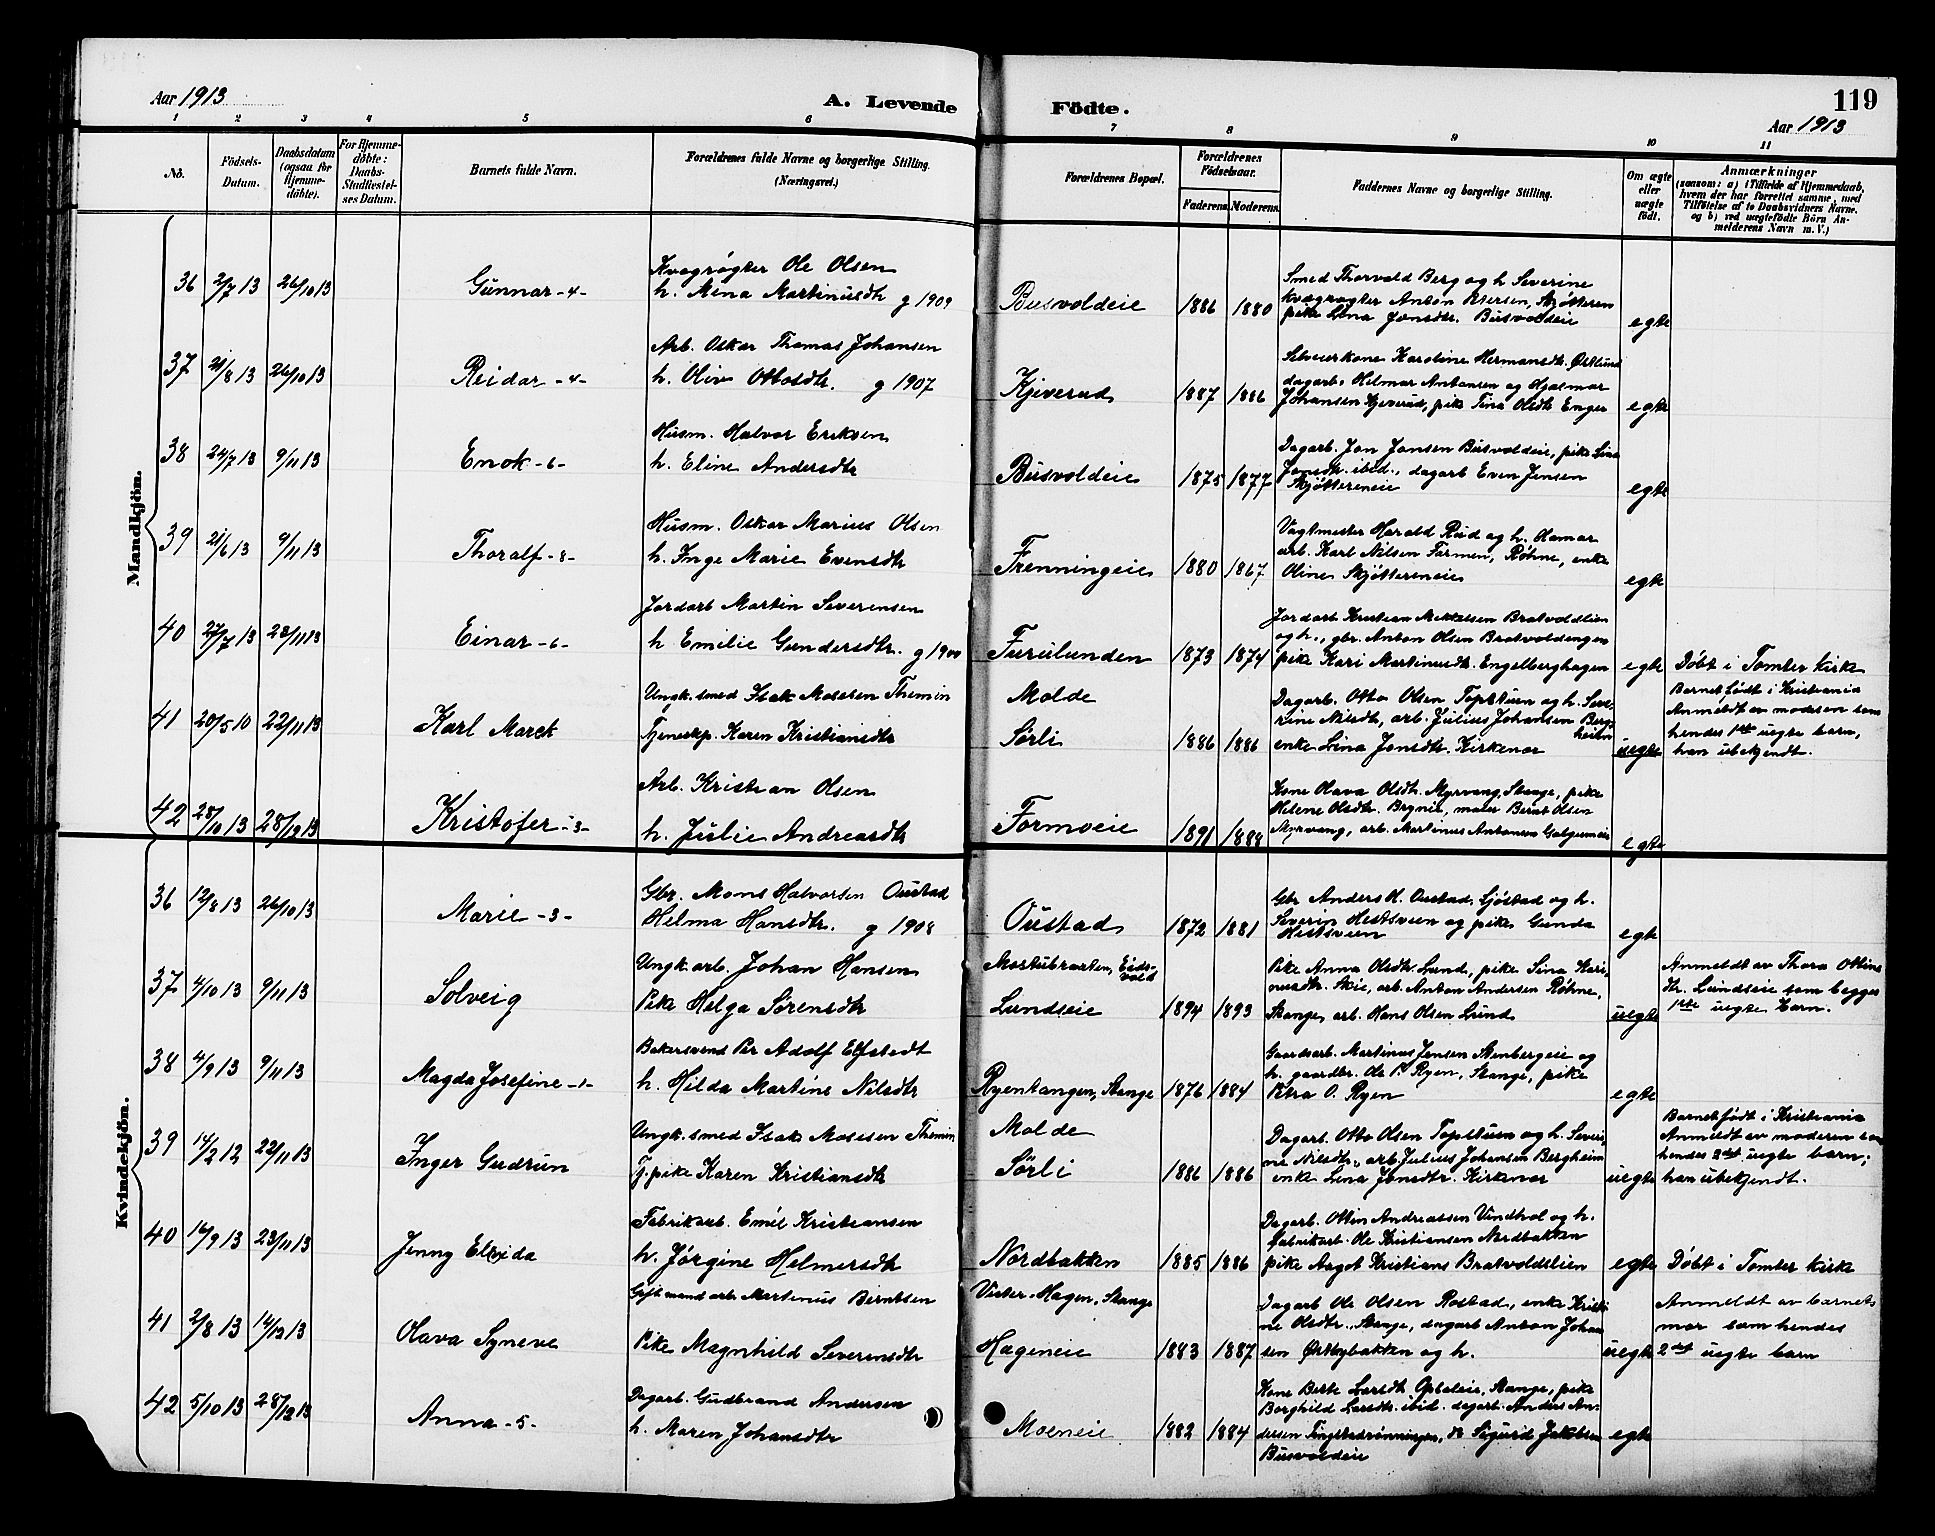 Aar 1913
A. Levende Födte.
119
Aar 1913
1 2 3 4 5 6 7 8 9 10 11
No.
Födsels-
Datum.
Daabsdatum
(ogsaa for
Hjemme-
döbte).
For Hjemme-
döbte:
Daabs-
Stadfæstel-
ses Datum.
Barnets fulde Navn.
Forældrenes fulde Navne og borgerlige Stilling.
(Næringsvei.)
Forældrenes Bopæl.
Forældrenes
Födselsaar.
Faderens. Moderens.
Faddernes Navne og borgerlige Stilling.
Om ægte
eller
uægte
födt.
Anmærkninger
(saasom: a) i Tilfælde af Hjemmedaab,
hvem der har forrettet samme, med
Tilföielse af to Daabsvidners Navne.
og b) ved uægtefödte Börn An-
melderens Navn m. V.)
Mandkjön.
36 2/7 13 26/10 13 Gunnar -4-
Kvægrøgter Ole Olsen
h. Mina Martinusdtr g 1909
Busvoldeie 1886 1880
Smed Thorvald Berg og h. Severine
kvægrøgter Anton Petersen, Skjøtteren
pike Lina Jonsdtr. Busvoldeie
egte
37 21/8 13 26/10 13 Reidar -4-
Arb. Oskar Thomas Johansen
h. Oliv Ottosdtr. g 1907
Kjeverud 1887 1886
Selveierkone Karoline Hermansdtr. Østlund
dagarb. Helmar Antonsen og Hjalmar
Johansen Kjeverud, pike Tina Olsdtr Enger
egte
38 24/7 13 9/11 13 Enok -6-
Husm. Halvor Eriksen
h. Eline Andersdtr
Busvoldeie 1875 1877
Dagarb. Jon Jonsen Busvoldeie, pike Lina
Jonsdtr. ibid., dagarb Even Jensen
Skjøttereneie
egte
39 21/6 13 9/11 13 Thoralf -8-
Husm. Oskar Marius Olsen
h. Inge Marie Evensdtr
Frenningeie 1880 1867
Vagtmester Harald Rud og h. Hamar
arb. Karl Nilsen Farmen, Røhne, enke
Oline Skjøttereneie
egte
40 27/7 13 23/11 13 Einar -6-
Jordarb Martin Severensen
h Emilie Gundersdtr. g 1900
Furulunden 1873 1874
Jordarb Kristian Mikkelsen Bratvoldlien
og h., gbr. Anton Olsen Bratvoldengen
pike Kari Martinusdtr. Engelberghagen
egte Döbt i Tomter kirke
41 20/5 10 22/11 13 Karl Marck
Ungk. smed Isak Mosesen Themin
Tjenestep. Karen Kristiansdtr
Molde
Sørli 1886 1886
Dagarb. Otto Olsen Toppstuen og h. Seve-
rine Nilsdtr, arb. Julius Johansen Berg-
heim
enke Lina Jonsdtr. Kirkenar
uegte
Barnet født i Kristiania
Anmeldt av moderen som
hendes 1ste uegte barn,
han ubekjendt.
42 28/10 13 28/12 13 Kristofer -3-
Arb. Kristian Olsen
h. Julie Andreasdtr
Formoeie 1891 1888
Kone Olava Olsdtr. Myrvang, Stange, pike
Helene Olsdtr. Brynie, maler Bernt Olsen
Myrvang, arb. Martinus Antonsen
egte
Kvindekjön.
36 12/8 13 26/10 13 Marie -3-
Gbr. Mons Halvorsen Oustad
Helma Hansdtr. g 1908
Oustad 1872 1881
Gbr Anders H. Oustad, Sjøstad og h.
Severin Hestsveen og pike Gunda
Hestsveen
egte
37 4/10 13 9/11 13 Solveig
Ungk. arb. Johan Hansen
Pike Helga Sørensdtr
Mostubraaten, Eids-
vold
Lundseie 1894 1893
Pike Anna Olsdtr. Lund, pike Sina Kari-
nusdtr. Skie, arb. Anton Andersen Røhne,
Stange, arb. Hans Olsen Lund
uegte
Anmeldt av Thora Ottins
dtr. Lundseie som begges
1ste uegte barn.
38 4/9 13 9/11 13 Magda Josefine -1-
Bakersvend Per Adolf Elfstedt
h. Hilda Martine Nilsdtr
Ryentangen, Stange 1876 1884
Gaardsarb. Martinus Jensen Stenbergeie og
h. gaardbr. Ole P. Ryen, Stange, pike
Petra O. Ryen
egte
39 14/2 12 22/11 13 Inger Gudrun
Ungk. smed Isak Mosesen Themin
Tj.pike Karen Kristiansdtr
Molde
Sørli 1886 1886
Dagarb. Otto Olsen Toppstuen og h. Severi-
ne Nilsdtr., arb Julius Johansen Bergheim
enke Lina Jonsdtr. Kirkenar
uegte
Barnet født i Kristiania
Anmeldt av moderen som
hendes 2det uegte barn;
han ubekjendt.
40 16/9 13 23/11 13 Jenny Elvida
Fabrikarb. Emil Kristiansen
h. Jørgine Helmersdtr
Nordbakken 1885 1886
Dagarb. Ottin Andreassen Vindhol og h.
fabrikarb. Ole Kristiansen Nordbakken
pike Aagot Kristians Bratvoldslien
egte Döbt i Tomter kirke
41 2/8 13 14/12 13 Olava Synøve
Gift mand arb. Martinus Berntsen
Pike Magnhild Severensdtr
Vister-Hagen, Stange
Hageneie 1883 1887
Dagarb Ole Olsen Rostad, enke Kristi-
ne Olsdtr., Stange, dagarb Anton Johan-
sen Østbybakken og h.
uegte
Anmeldt av barnets
mor som hendes
2det uegte barn
42 5/10 13 28/12 13 Anna -5-
Dagarb. Gudbrand Andersen
h. Maren Johansdtr
Moeneie 1882 1884
Kone Berte Larsdtr. Opsaleie, Stange, pike
Borghild Larsdtr. ibid. dagarb. Anders An-
dersen Tingstadrønningen, do Sigurd Jakobsen
Busvoldeie
egte